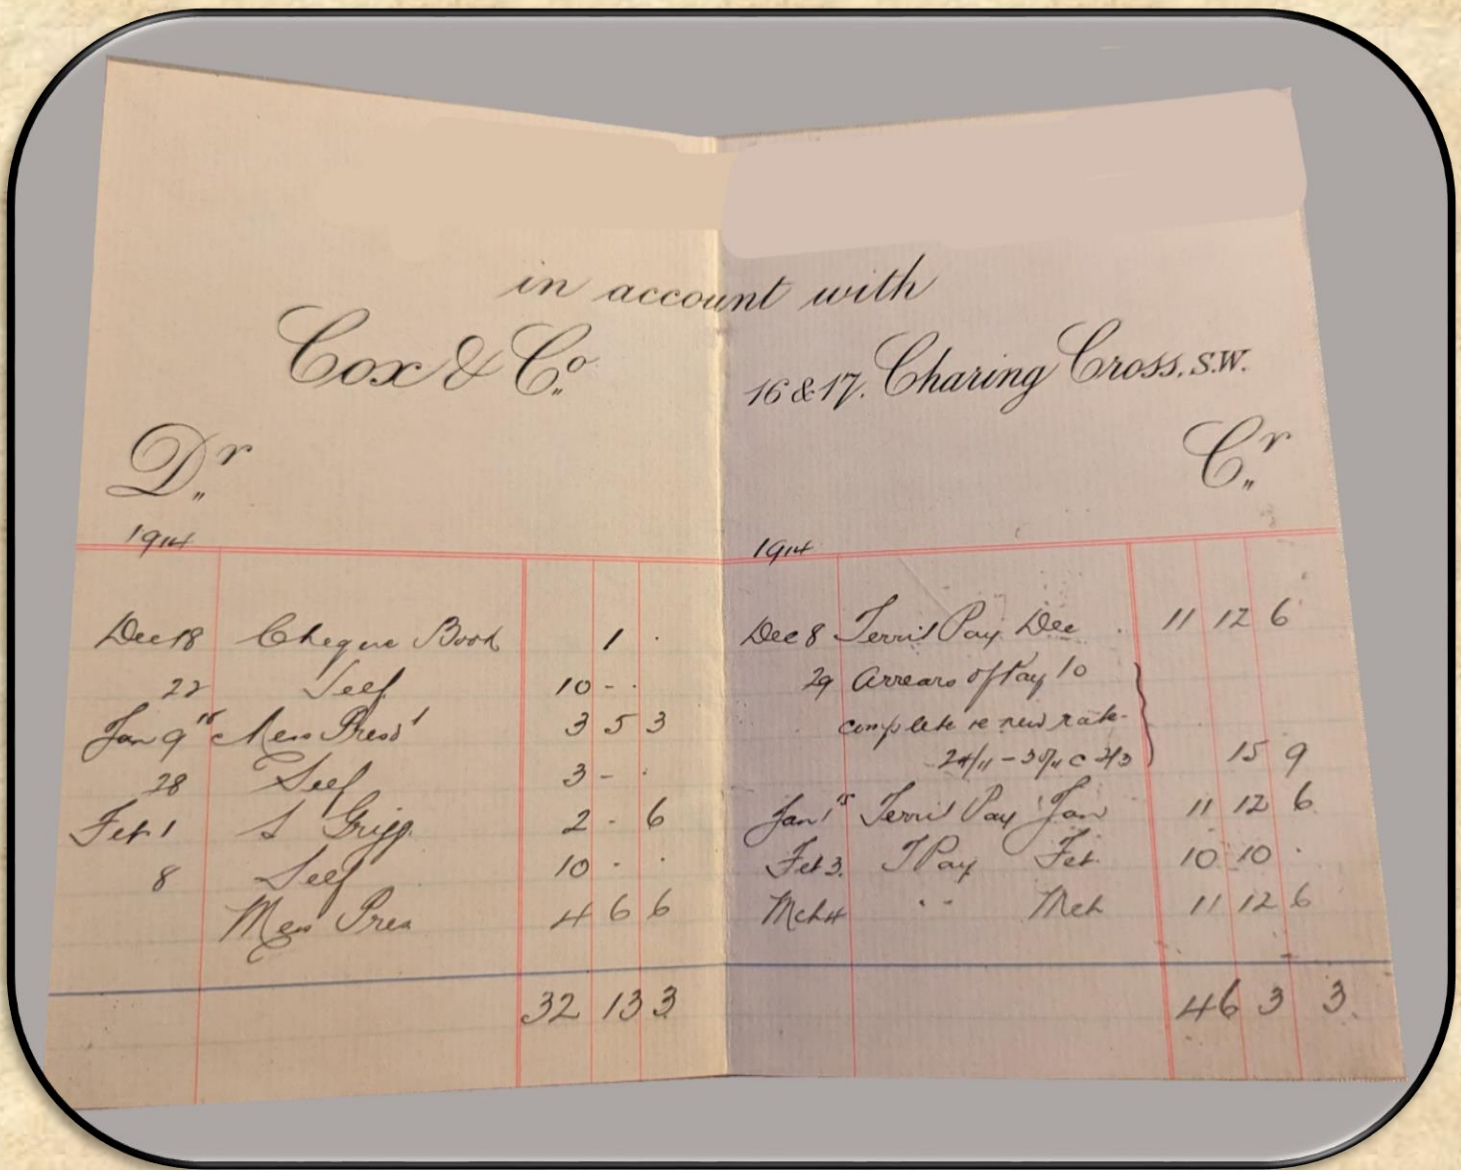 in account with
Cox & Co.
16 & 17. Charing Cross. S.W.
Dr
Cr
1914
Dec 18 Cheque Book 1 .
22 Self 10 - .
Jan 9 Mess Presdt 3 5 3
28 Self 3 - .
Feb 1 S Grigg 2 - 6
8 Self 10 . .
Mess Pres 4 6 6
32 13 3
1914
Dec 8 Territ Pay Dec 11 12 6
29 Arrears of Pay to
complete re new rate
24/11 - 30/11 @ 2/3 15 9
Jan 1 Territ Pay Jan 11 12 6
Feb 3. T Pay Feb. 10 10 .
Mch 4 " " Mch 11 12 6
46 3 3.